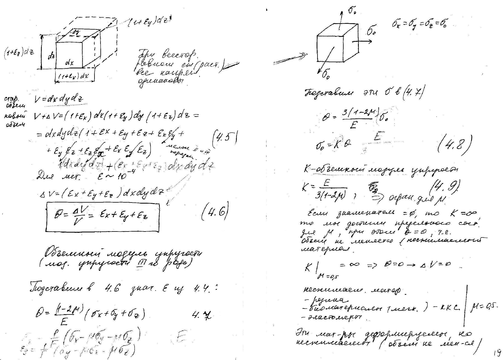 (1+εy)dz
(1+εz)dz
dz
dx
(1+εx)dx
При всестор.
все напряж.
одинаковы
стар. объем V=dxdydz
новый объем V+ΔV=(1+εx)dx(1+εy)dy(1+εz)dz=
=dxdydz(1+εx+εy+εz+εxεy
+εyεz+εzεx+εxεyεz)
(4.5)
Для мет. ε~10⁻⁴
ΔV=(εx+εy+εz)dxdydz
θ = ΔV/V = εx+εy+εz (4.6)
Объемный модуль упругости
(мод. упругости III-го рода)
Подставим в 4.6 знач. ε из 4.4:
θ = (1-2μ)/E (σx+σy+σz) 4.7
σ₀
σ₀
σ₀
σx=σy=σz=σ₀
Подставим эти σ в (4.7)
θ = 3(1-2μ)/E σ₀
σ₀ = K θ (4.8)
K-объемный модуль упругости
K = E/3(1-2μ); (4.9)
⇒ огран. для μ
Если знаменатель =0, то K=∞
то мы достигли предельного
для μ, при этом θ=0, т.е.
объем не меняется (несжимаемый
материал.
K|μ=0,5 = ∞ ⇒ θ=0 ⇒ ΔV=0.
несжимаем. матер.
- резина
- биоматериалы
- эластомеры
μ=0,5.
Эти мат-ры деформируемы, но
несжимаемы (объем не мен-ся)
19